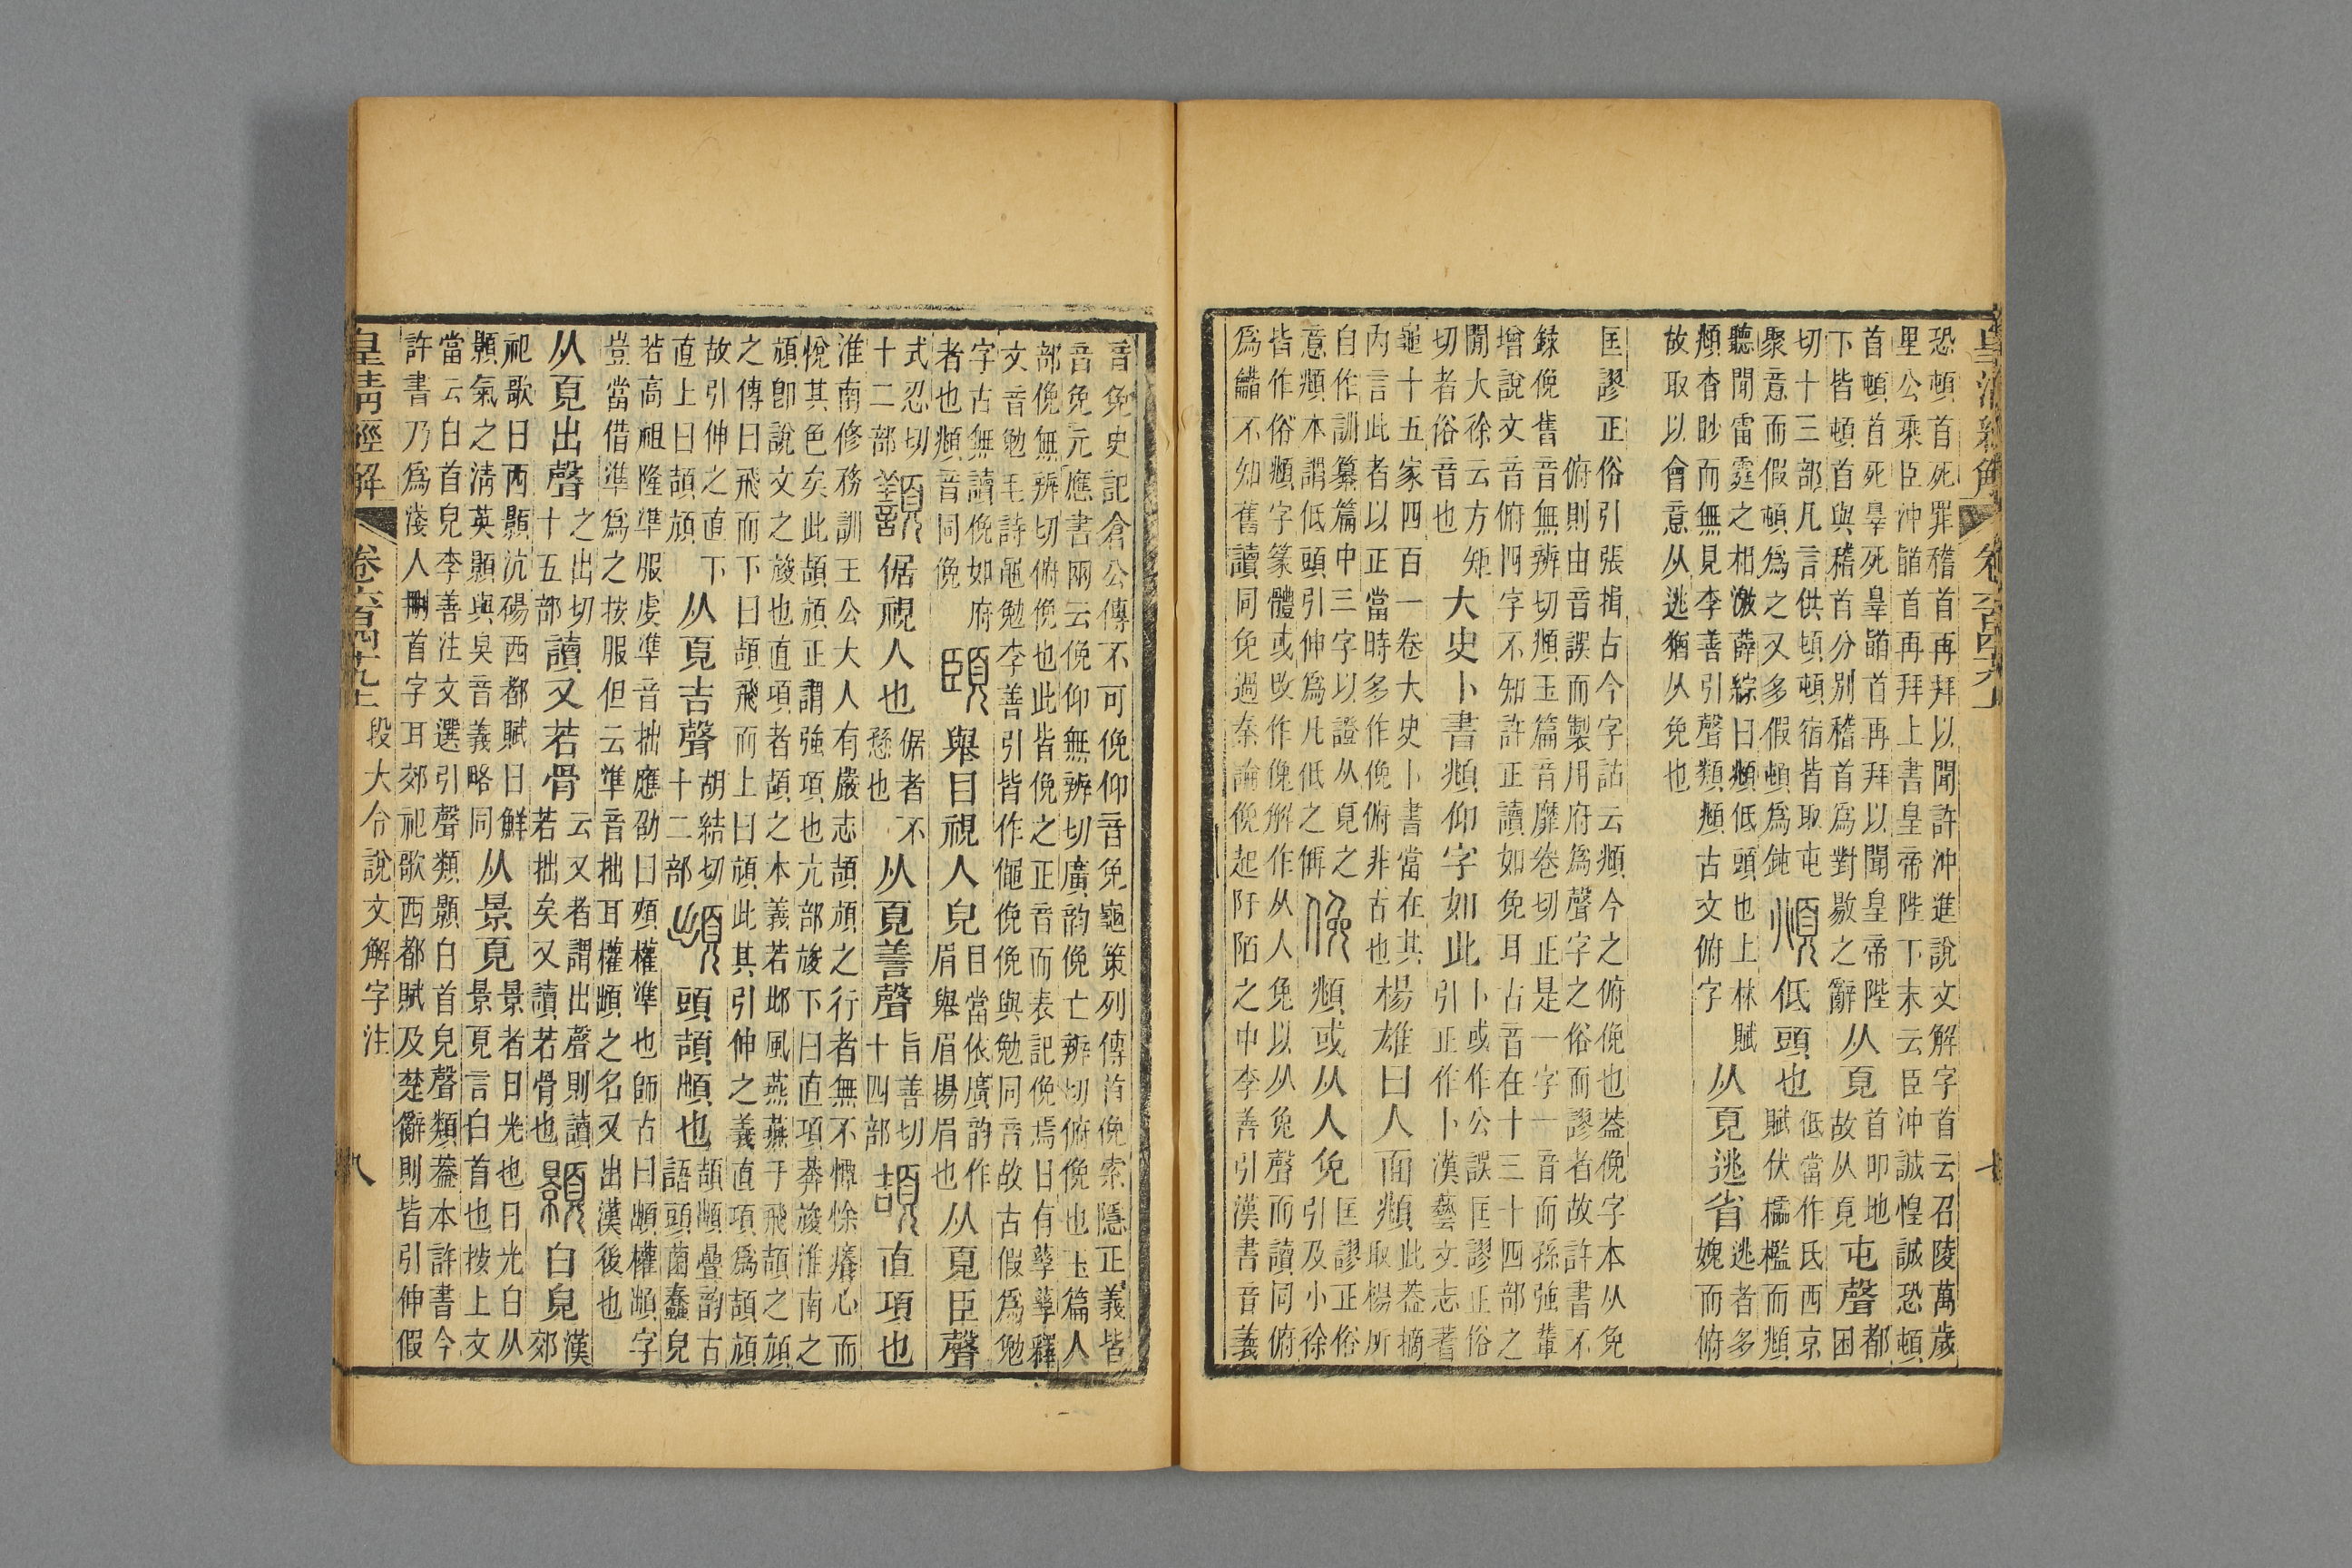 皇清經解 卷六百四十九上 七
恐頓首死罪稽首再拜以聞許沖進說文解字首云召陵萬歲
里公乘臣沖䭫首再拜上書皇帝陛下末云臣沖誠惶誠恐頓
首頓首死辠死辠䭫首再拜以聞皇帝陛
下皆頓首與稽首分別稽首爲對敭之辭
从頁
首叩地
故从頁
屯聲
都
困
切十三部凡言供頓頓宿皆取屯
聚意而假頓爲之又多假頓爲鈍
頫
低頭也
低當作氐西京
賦伏櫺檻而頫
聽聞雷霆之相激薛綜曰頫低頭也上林賦
頫杳眇而無見李善引聲類頫古文俯字
从頁逃省
逃者多
媿而俯
故取以會意从逃猶从免也
匡謬正俗引張揖古今字詁云頫今之俯俛也葢俛字本从免
俯則由音誤而製用府爲聲字之俗而謬者故許書不
錄俛舊音無辨切頫玉篇音靡卷切正是一字一音而孫強輩
增說文音俯四字不知許正讀如免耳古音在十三十四部之
閒大徐云方矩
切者俗音也
大史卜書頫仰字如此
卜或作公誤匡謬正俗
引正作卜漢藝文志蓍
龜十五家四百一卷大史卜書當在其
內言此者以正當時多作俛俯非古也
楊雄曰人面頫
此葢摘
取楊所
自作訓纂篇中三字以證从頁之
意頫本謂低頭引伸爲凡低之偁
俛
頫或从人免
匡謬正俗
引及小徐
皆作俗頫字篆體或改作俛解作从人免以从兔聲而讀同俯
爲䋎不知舊讀同免過秦論俛起阡陌之中李善引漢書音義
音免史記倉公傳不可俛仰音免龜策列傳首俛索隱正義皆
音免元應書兩云俛仰無辨切廣韵俛亡辨切俯俛也玉篇人
部俛無辨切俯俛也此皆俛之正音而表記俛焉日有孳孳釋
文音勉毛詩黽勉李善引皆作僶俛俛與勉同音故古假爲勉
字古無讀俛如府
者也頫音同俛
舉目視人皃
目當依廣韵作
眉舉眉揚眉也
从頁臣聲
式忍切
十二部
倨視人也
倨者不
愻也
从頁善聲
旨善切
十四部
頡
直項也
淮南修務訓王公大人有嚴志頡頏之行者無不憛悇癢心而
悅其色矣此頡頏正謂強項也亢部㚇下曰直項莽㚇淮南之
頏卽說文之㚇也直項者頡之本義若邶風燕燕于飛頡之頏
之傳曰飛而下曰頡飛而上曰頏此其引伸之義直項爲頡頏
故引伸之直下
直上曰頡頏
从頁吉聲
胡結切
十二部
䪼
頭頡䪼也
頡䪼疊韵古
語頭菌蠢皃
若高祖隆準服虔準音拙應劭曰頞權準也師古曰䪼權䪼字
豈當借準爲之按服但云準音拙耳權䪼之名又出漢後也
从頁出聲
之出切
十五部
讀又若骨
云又者謂出聲則讀
若拙矣又讀若骨也
顥
白皃
漢
郊
祀歌曰西顥沆碭西都賦曰鮮
顥氣之清英顥與昊音義略同
从景頁
景者日光也日光白从
景頁言白首也按上文
當云白首皃李善注文選引聲類顥白首皃聲類葢本許書今
許書乃爲淺人刪首字耳郊祀歌西都賦及楚辭則皆引伸假
皇清經解 卷六百四十九上 段大令說文解字注 八